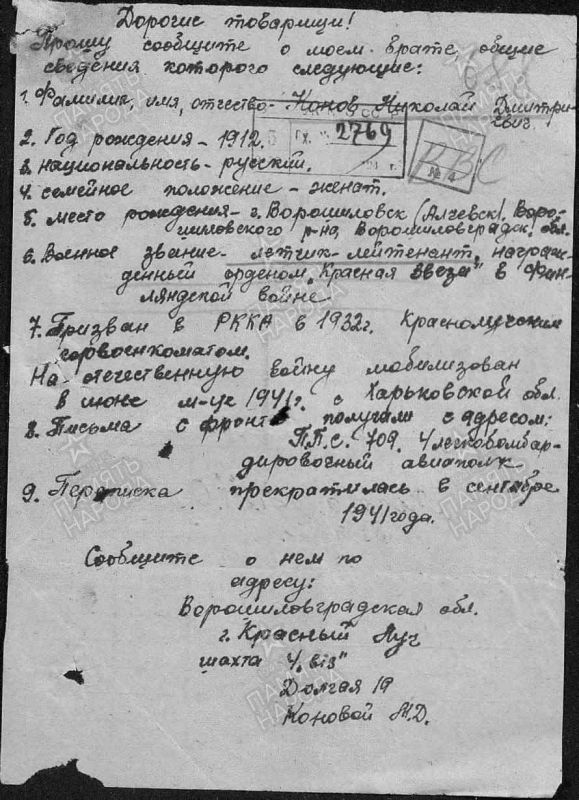 Дорогие товарищи!
Прошу сообщите о моем брате, общие
сведения которого следующие:
1. Фамилия, имя, отчество- Конов Николай Дмитри-
евич.
2. Год рождения - 1912.
ВХ. № 2769
194 г.
3. национальность - русский.
ВВС
№ 4
4. семейное положение - женат.
5. место рождения - г. Ворошиловск (Алчевск). Воро-
шиловского р-на, Ворошиловградск. обл.
6. Военное звание - летчик-лейтенант, награж-
денный орденом „Красная Звезда" в Фин-
ляндской войне
7. Призван в РККА в 1932г. Краснолучским
горвоенкоматом.
На отечественную войну мобилизован
в июне м-це 1941г. с Харьковской обл.
8. Письма с фронта получали с адресом:
П.П.С. 709. 4 легкобомбар-
дировочный авиаполк
9. Переписка прекратилась в сентябре
1941 года.
Сообщите о нем по
адресу:
Ворошиловградская обл.
г. Красный Луч
шахта
Долгая 19
Коновой М.Д.
ПАМЯТЬ НАРОДА